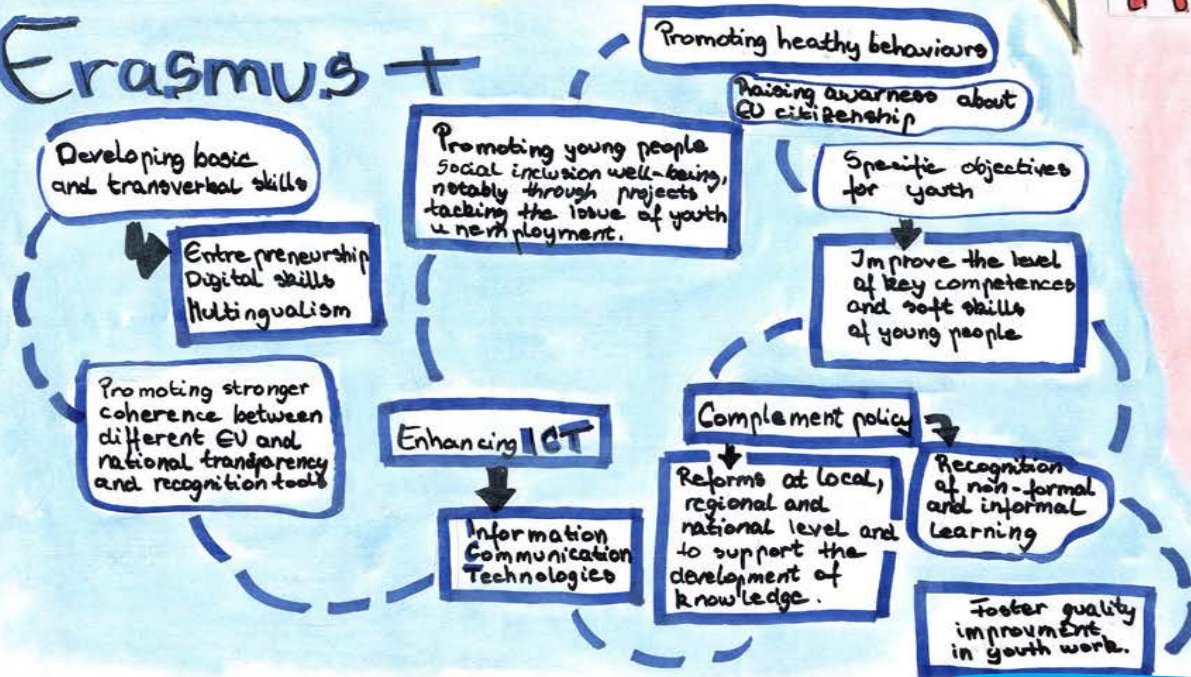 Erasmus +
Developing basic
and transverbal skills
Entrepreneurship
Digital skills
Multingualism
Promoting stronger
coherence between
different EU and
national trandparency
and recognition tools
Promoting young people
social inclusion well-being,
notably through projects
tacking the issue of youth
unemployment.
Enhancing ICT
Information
Communication
Technologies
Promoting heathy behaviours
Raising awarness about
EU citizenship
Specific objectives
for youth
Improve the level
of key competences
and soft skills
of young people
Complement policy
Reforms at local,
regional and
national level and
to support the
development of
knowledge.
Recognition
of non-formal
and informal
Learning
Foster quality
improvment
in youth work.